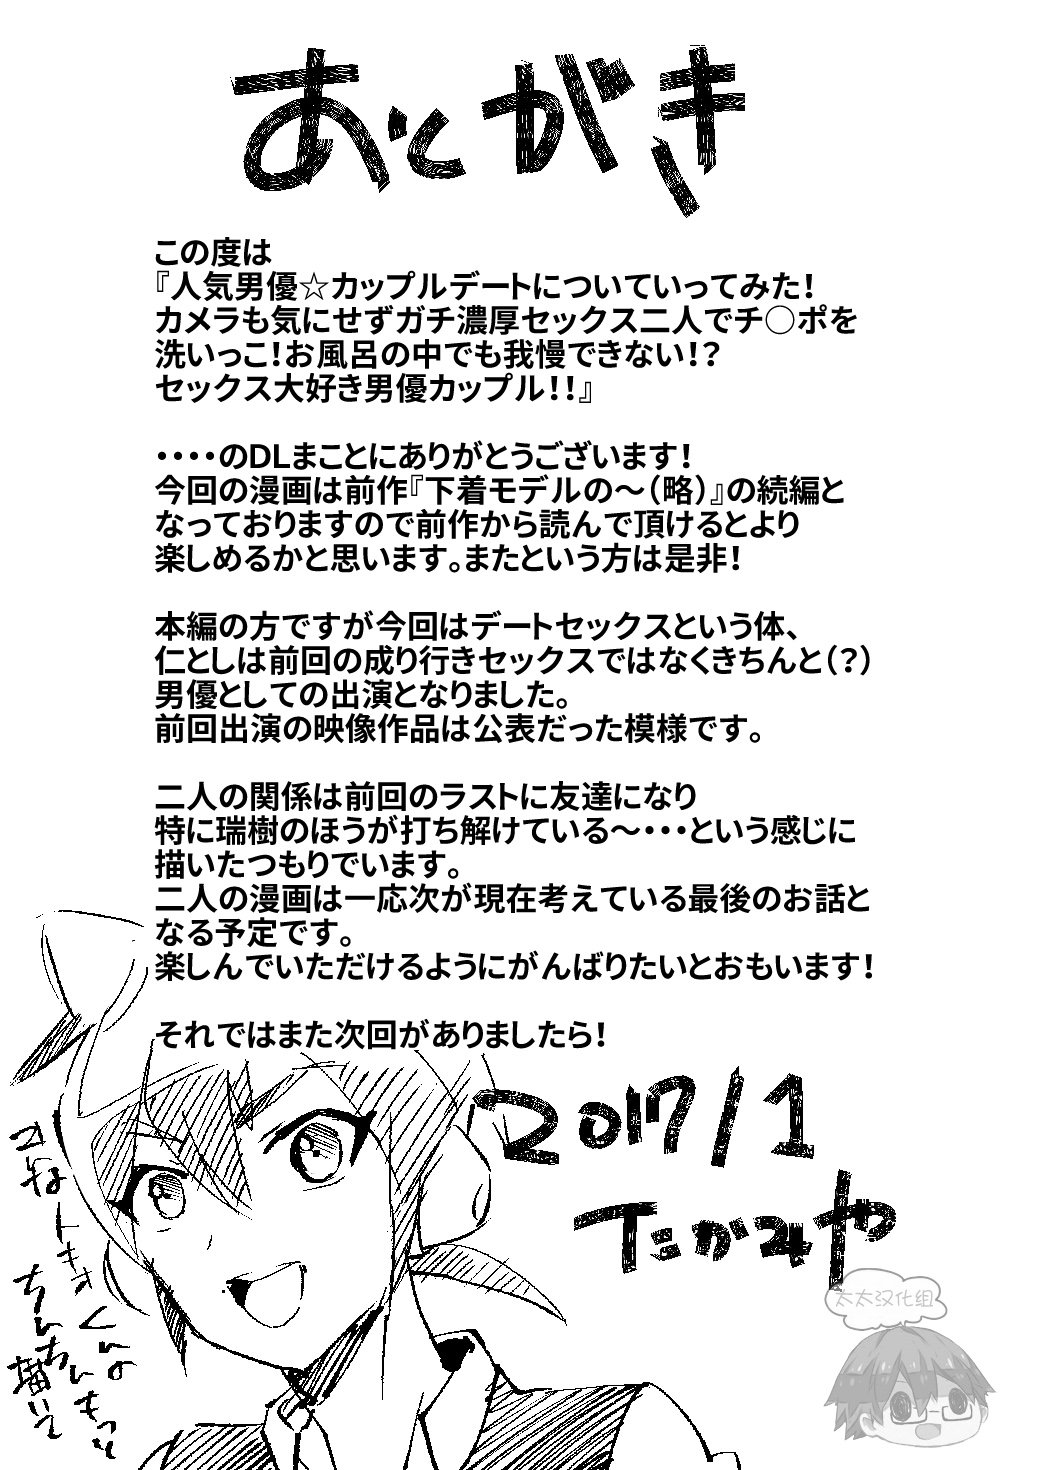 あとがき
この度は
『人気男優☆カップルデートについていってみた！
カメラも気にせずガチ濃厚セックス二人でチ○ポを
洗いっこ！お風呂の中でも我慢できない！？
セックス大好き男優カップル！！』
・・・・のDLまことにありがとうございます！
今回の漫画は前作『下着モデルの～（略）』の続編と
なっておりますので前作から読んで頂けるとより
楽しめるかと思います。またという方は是非！
本編の方ですが今回はデートセックスという体、
仁としは前回の成り行きセックスではなくきちんと（？）
男優としての出演となりました。
前回出演の映像作品は公表だった模様です。
二人の関係は前回のラストに友達になり
特に瑞樹のほうが打ち解けている～・・・という感じに
描いたつもりでいます。
二人の漫画は一応次が現在考えている最後のお話と
なる予定です。
楽しんでいただけるようにがんばりたいとおもいます！
それではまた次回がありましたら！
2017/1
たかみや
トキオくんの
ちんちんもっと
描いて
太太汉化组